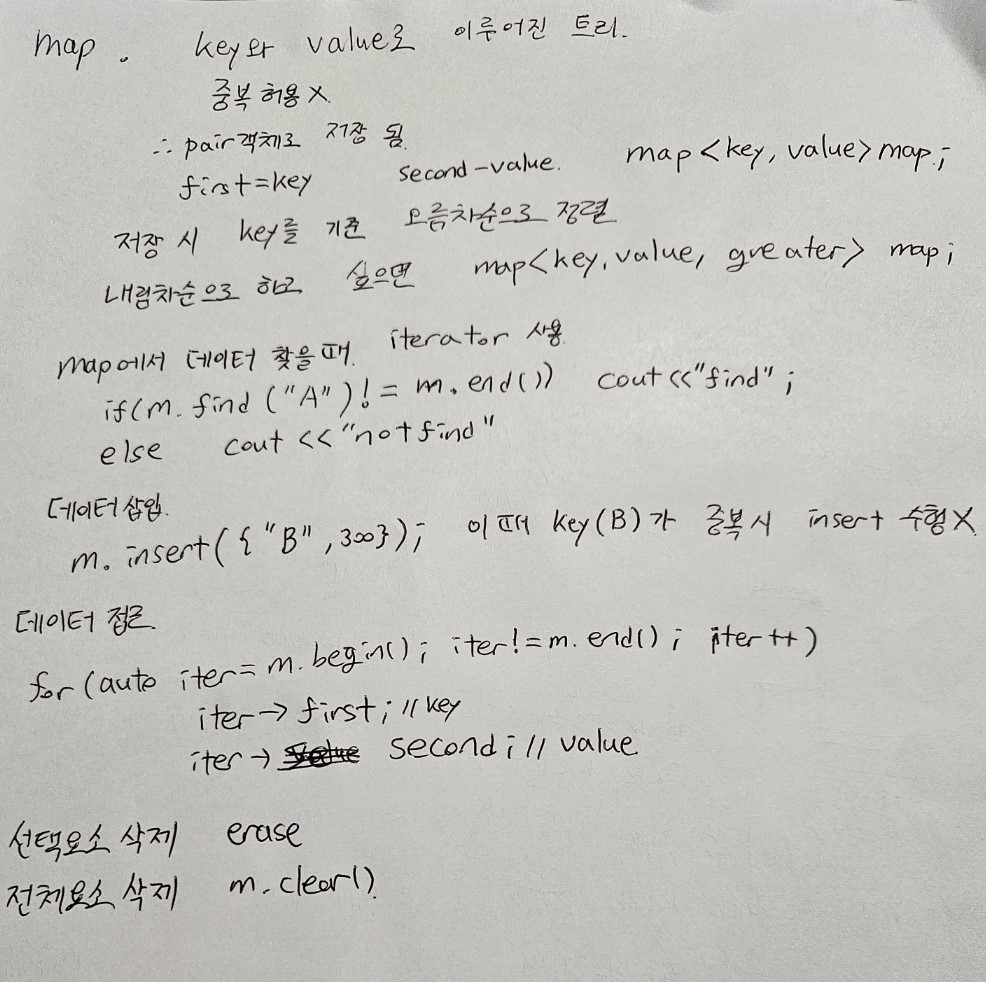 map. key와 value로 이루어진 트리.
중복 허용 X
∴ pair객체로 저장 됨.
first=key second-value. map<key, value>map;
저장 시 key를 기준 오름차순으로 정렬
내림차순으로 하고 싶으면 map<key, value, greater> map;
map에서 데이터 찾을때. iterator 사용
if(m.find("A")!= m.end()) cout<<"find";
else cout<<"not find"
데이터 삽입.
m.insert({"B",300}); 이 때 key(B)가 중복시 insert 수형X
데이터 접근.
for(auto iter=m.begin(); iter!=m.end(); iter++)
iter→first; //key
iter→ second; // value
선택요소 삭제 erase
전체요소 삭제 m.clear()